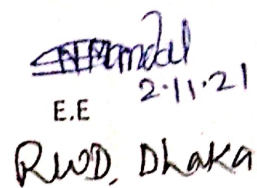 2.11.21
E.E
RWD, Dhaka